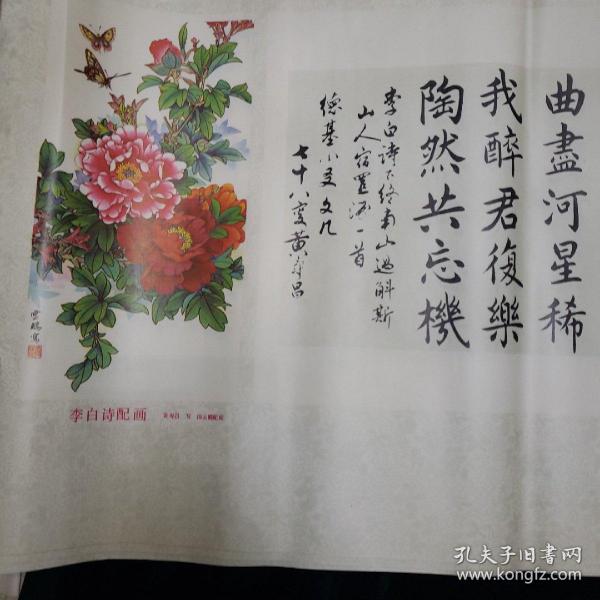 曲盡河星稀
我醉君復樂
陶然共忘機
李白詩下終南山過斛斯
山人宿置酒一首
德基小友文几
七十八叟黃壽昌
雲鵬寫
李白诗配画
孔夫子旧书网
www.kongfz.com